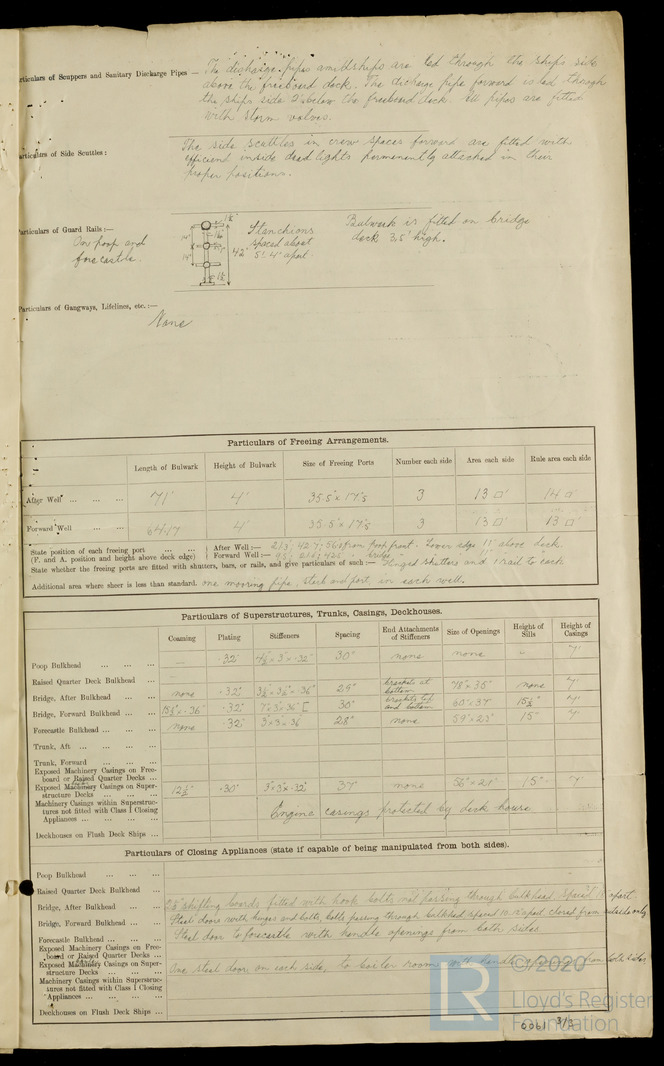 Particulars of Scuppers and Sanitary Discharge Pipes — The discharge pipes amidships are led through the ships side
above the freeboard deck. The discharge pipe forward is led through
the ships side 2' below the freeboard deck. All pipes are fitted
with storm valves.
Particulars of Side Scuttles :
The side scuttles in crew spaces forward are fitted with
efficient inside dead lights permanently attached in their
proper positions.
Particulars of Guard Rails :—
On poop and
forecastle.
14"
14"
42"
Stanchions
spaced about
5' 4" apart.
Bulwark is fitted on bridge
deck 3.5' high.
Particulars of Gangways, Lifelines, etc. :—
None
Particulars of Freeing Arrangements.
Length of Bulwark Height of Bulwark Size of Freeing Ports Number each side Area each side Rule area each side
After Well ... ... ... 71' 4' 35.5" x 17.5 3 13 □' 14 □'
Forward Well ... ... 64.17 4' 35.5" x 17.5 3 13 □' 13 □'
State position of each freeing port ... ... ... After Well :— from poop front. Lower edge 11" above deck
(F. and A. position and height above deck edge) Forward Well :— bridge
State whether the freeing ports are fitted with shutters, bars, or rails, and give particulars of each :— Hinged shutters and 1 rail to each
Additional area where sheer is less than standard. one mooring pipe, starb and port, in each well.
Particulars of Superstructures, Trunks, Casings, Deckhouses.
Coaming Plating Stiffeners Spacing End Attachments of Stiffeners Size of Openings Height of Sills Height of Casings
Poop Bulkhead ... ... ... — .32" 30" none none – 7'
Raised Quarter Deck Bulkhead ...
Bridge, After Bulkhead ... ... none .32" 25" brackets at bottom 48" x 35" none 7'
Bridge, Forward Bulkhead ... ... 15½" x .36" .32" 7" x 3" x .36" [ 30" brackets top and bottom 60" x 37" 15½" 7'
Forecastle Bulkhead ... ... ... none .32" 3" x 3" x .36 28" none 59" x 25" 15" 7'
Trunk, Aft ... ... ... ...
Trunk, Forward ... ... ...
Exposed Machinery Casings on Free-
board or Raised Quarter Decks ...
Exposed Machinery Casings on Super-
structure Decks ... ... ... 12½" .30" 3" x 3" x .32" 37" none 56" x 21" 15" 7'
Machinery Casings within Superstruc-
tures not fitted with Class I Closing
Appliances ... ... ... ... Engine casings protected by deck house
Deckhouses on Flush Deck Ships ...
Particulars of Closing Appliances (state if capable of being manipulated from both sides).
Poop Bulkhead ... ... ...
Raised Quarter Deck Bulkhead ...
Bridge, After Bulkhead ... ... 2.5" shifting boards fitted with hook bolts not passing through bulkhead. Spaced apart
Bridge, Forward Bulkhead ... Steel doors with hinges and bolts, bolts passing through bulkhead spaced apart closed from outside only
Forecastle Bulkhead ... ... ... Steel door to forecastle with handle openings from both sides
Exposed Machinery Casings on Free-
board or Raised Quarter Decks ...
Exposed Machinery Casings on Super-
structure Decks ... ... ... One steel door on each side, to boiler room with handle openings from both sides
Machinery Casings within Superstruc-
tures not fitted with Class I Closing
Appliances ... ... ... ...
Deckhouses on Flush Deck Ships ...
LR
©2020
Lloyd's Register
Foundation
0061 3/3